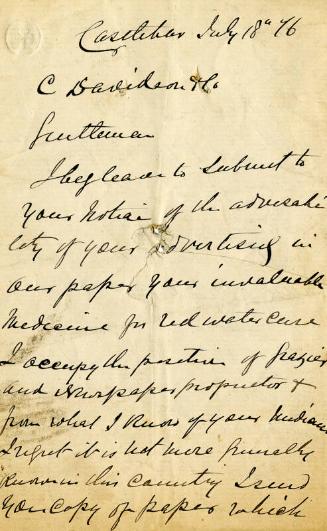 Castlebar July 18th 76
C Davidson & Co
Gentlemen
I beg leave to submit to
your notice of the advisabi
lity of your advertising in
our paper your invaluable
medicine for red water cure
I occupy the position of Grazier
and Newspaper proprietor &
from what I know of your medicine
I regret it is not more generally
known in this country I send
you copy of paper which